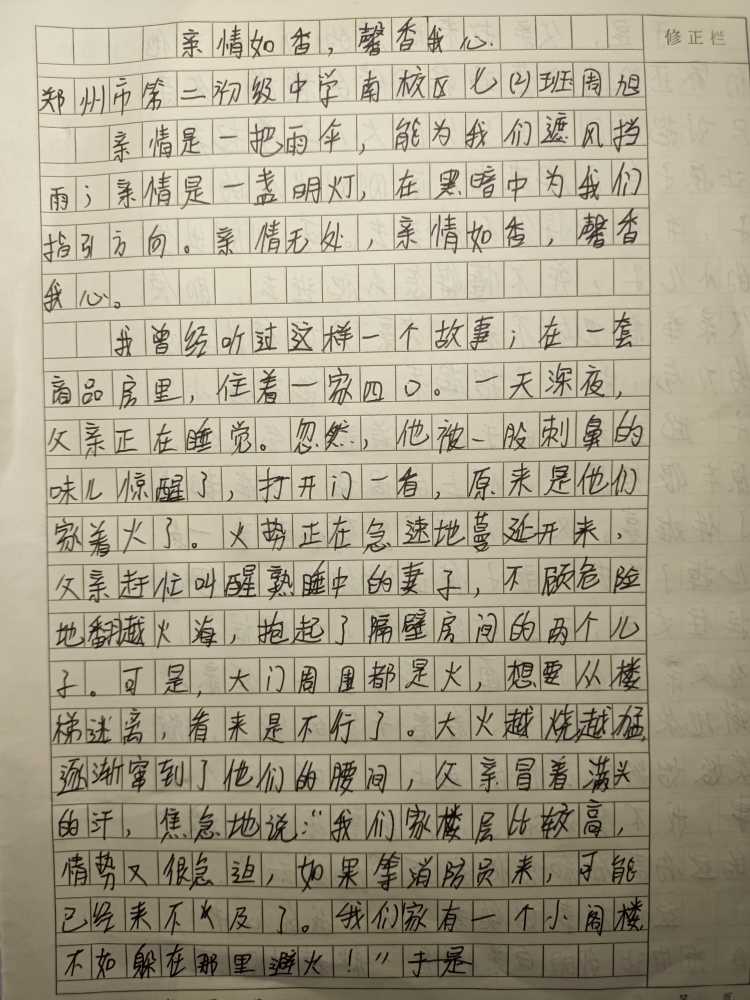 亲情如香，馨香我心.
修正栏
郑州市第二初级中学南校区七(2)班周旭
亲情是一把雨伞，能为我们遮风挡
雨；亲情是一盏明灯，在黑暗中为我们
指引方向。亲情无处，亲情如香，馨香
我心。
我曾经听过这样一个故事；在一套
商品房里，住着一家四口。一天深夜，
父亲正在睡觉。忽然，他被一股刺鼻的
味儿惊醒了，打开门一看，原来是他们
家着火了。火势正在急速地蔓延开来，
父亲赶忙叫醒熟睡中的妻子，不顾危险
地翻越火海，抱起了隔壁房间的两个儿
子。可是，大门周围都是火，想要从楼
梯逃离，看来是不行了。大火越烧越猛，
逐渐窜到了他们的腰间，父亲冒着满头
的汗，焦急地说：“我们家楼层比较高，
情势又很急迫，如果等消防员来，可能
已经来不及了。我们家有一个小阁楼
不如躲在那里避火！”于是